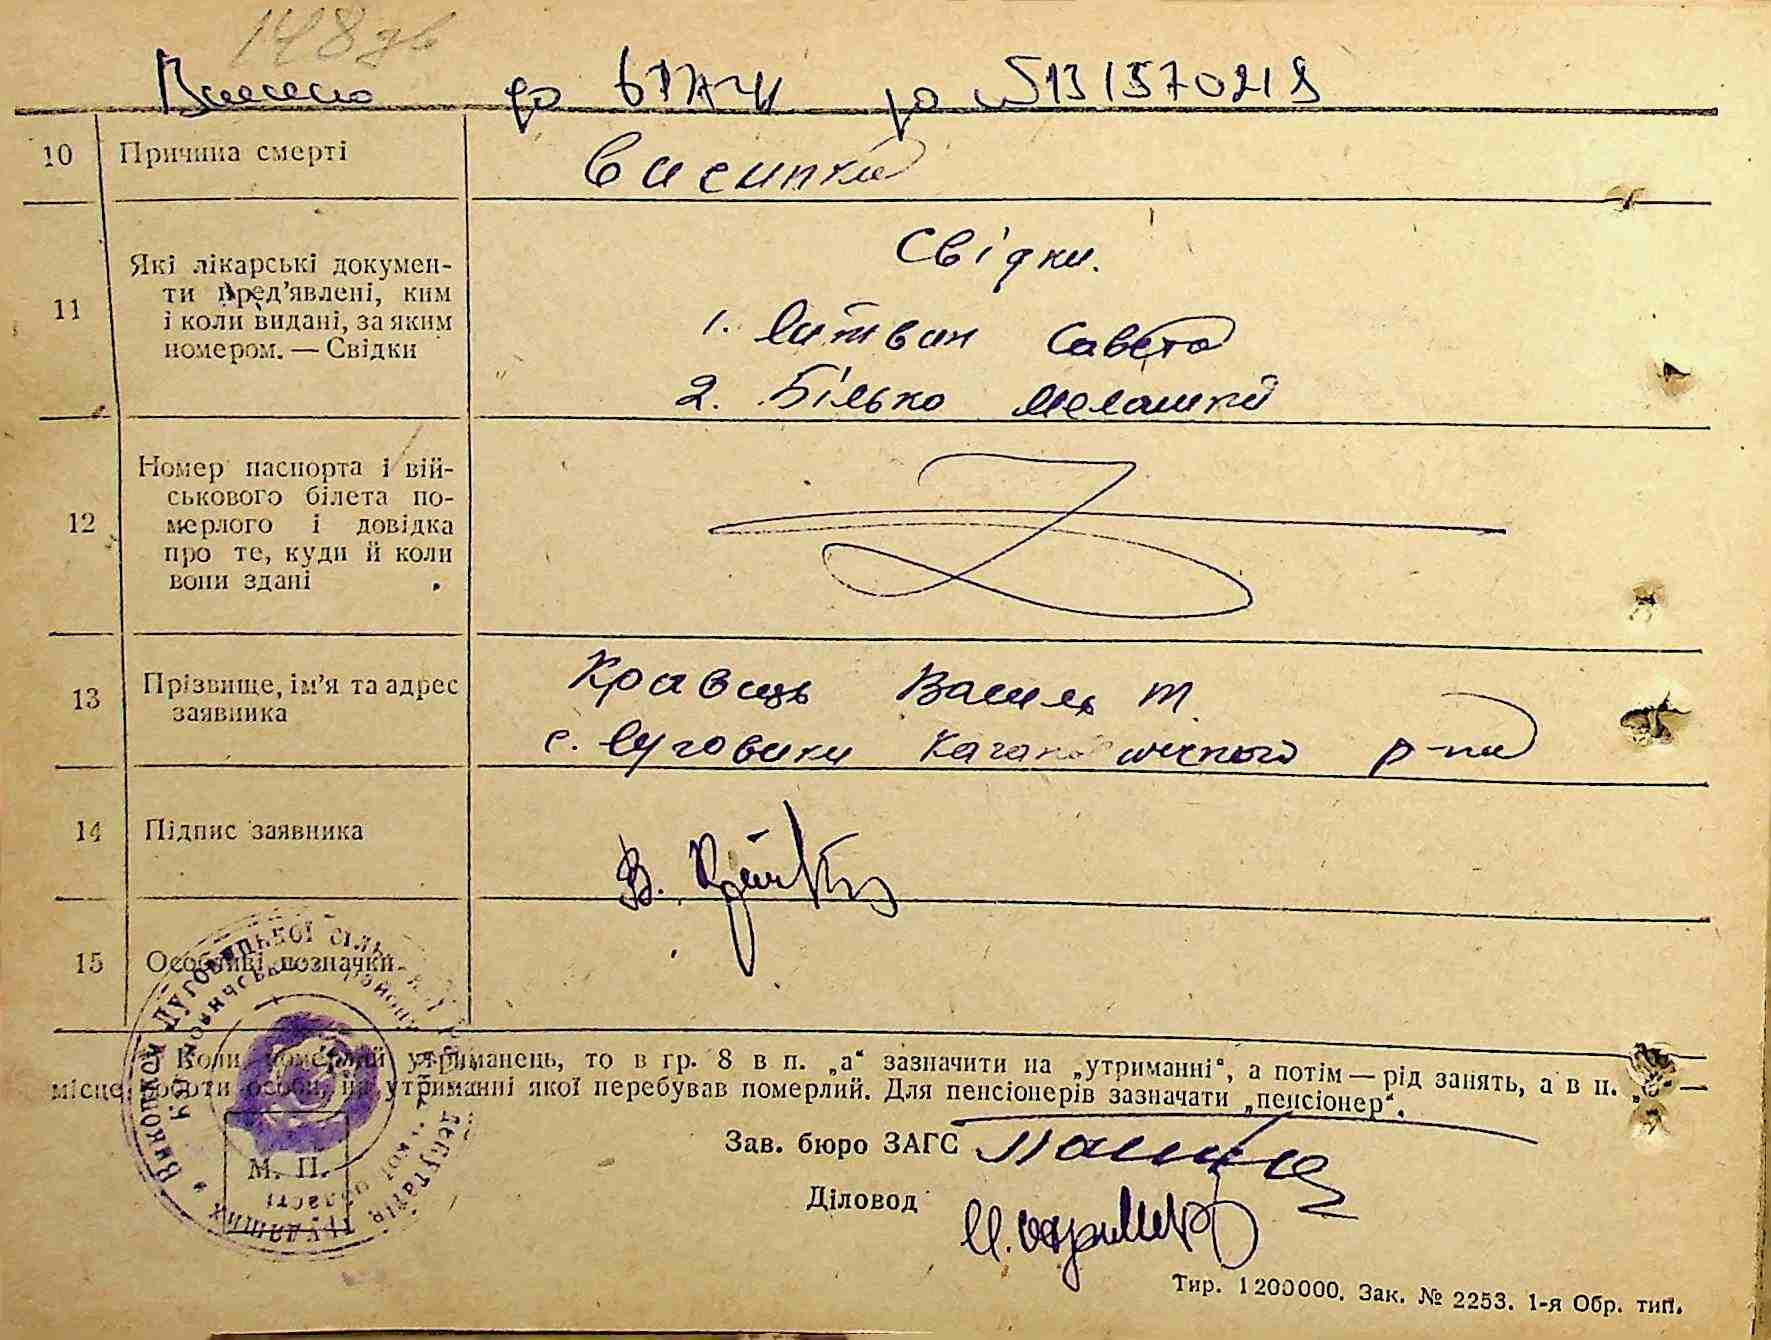 148 зв
Внесено до ДРАЦС за № 131570219
10 Причина смерті
висипка
11 Які лікарські докумен-
ти пред'явлені, ким
і коли видані, за яким
номером. — Свідки
Свідки.
1. Литвин Савета
2. Білько Мелашка
12 Номер паспорта і вій-
ськового білета по-
мерлого і довідка
про те, куди й коли
вони здані
13 Прізвище, ім'я та адрес
заявника
Кравець Василь Т.
с. Луговики Кагановичского р-на
14 Підпис заявника
В.
15 Особливі позначки
Виконком Луговицької сільської Ради депутатів трудящих
Кагановичського району області
Коли померлий утриманець, то в гр. 8 в п. „а“ зазначити на „утриманні“, а потім — рід занять, а в п. —
місце роботи особи, на утриманні якої перебував померлий. Для пенсіонерів зазначати „пенсіонер“.
М. П.
Зав. бюро ЗАГС
Діловод
Тир. 1200000. Зак. № 2253. 1-я Обр. тип.